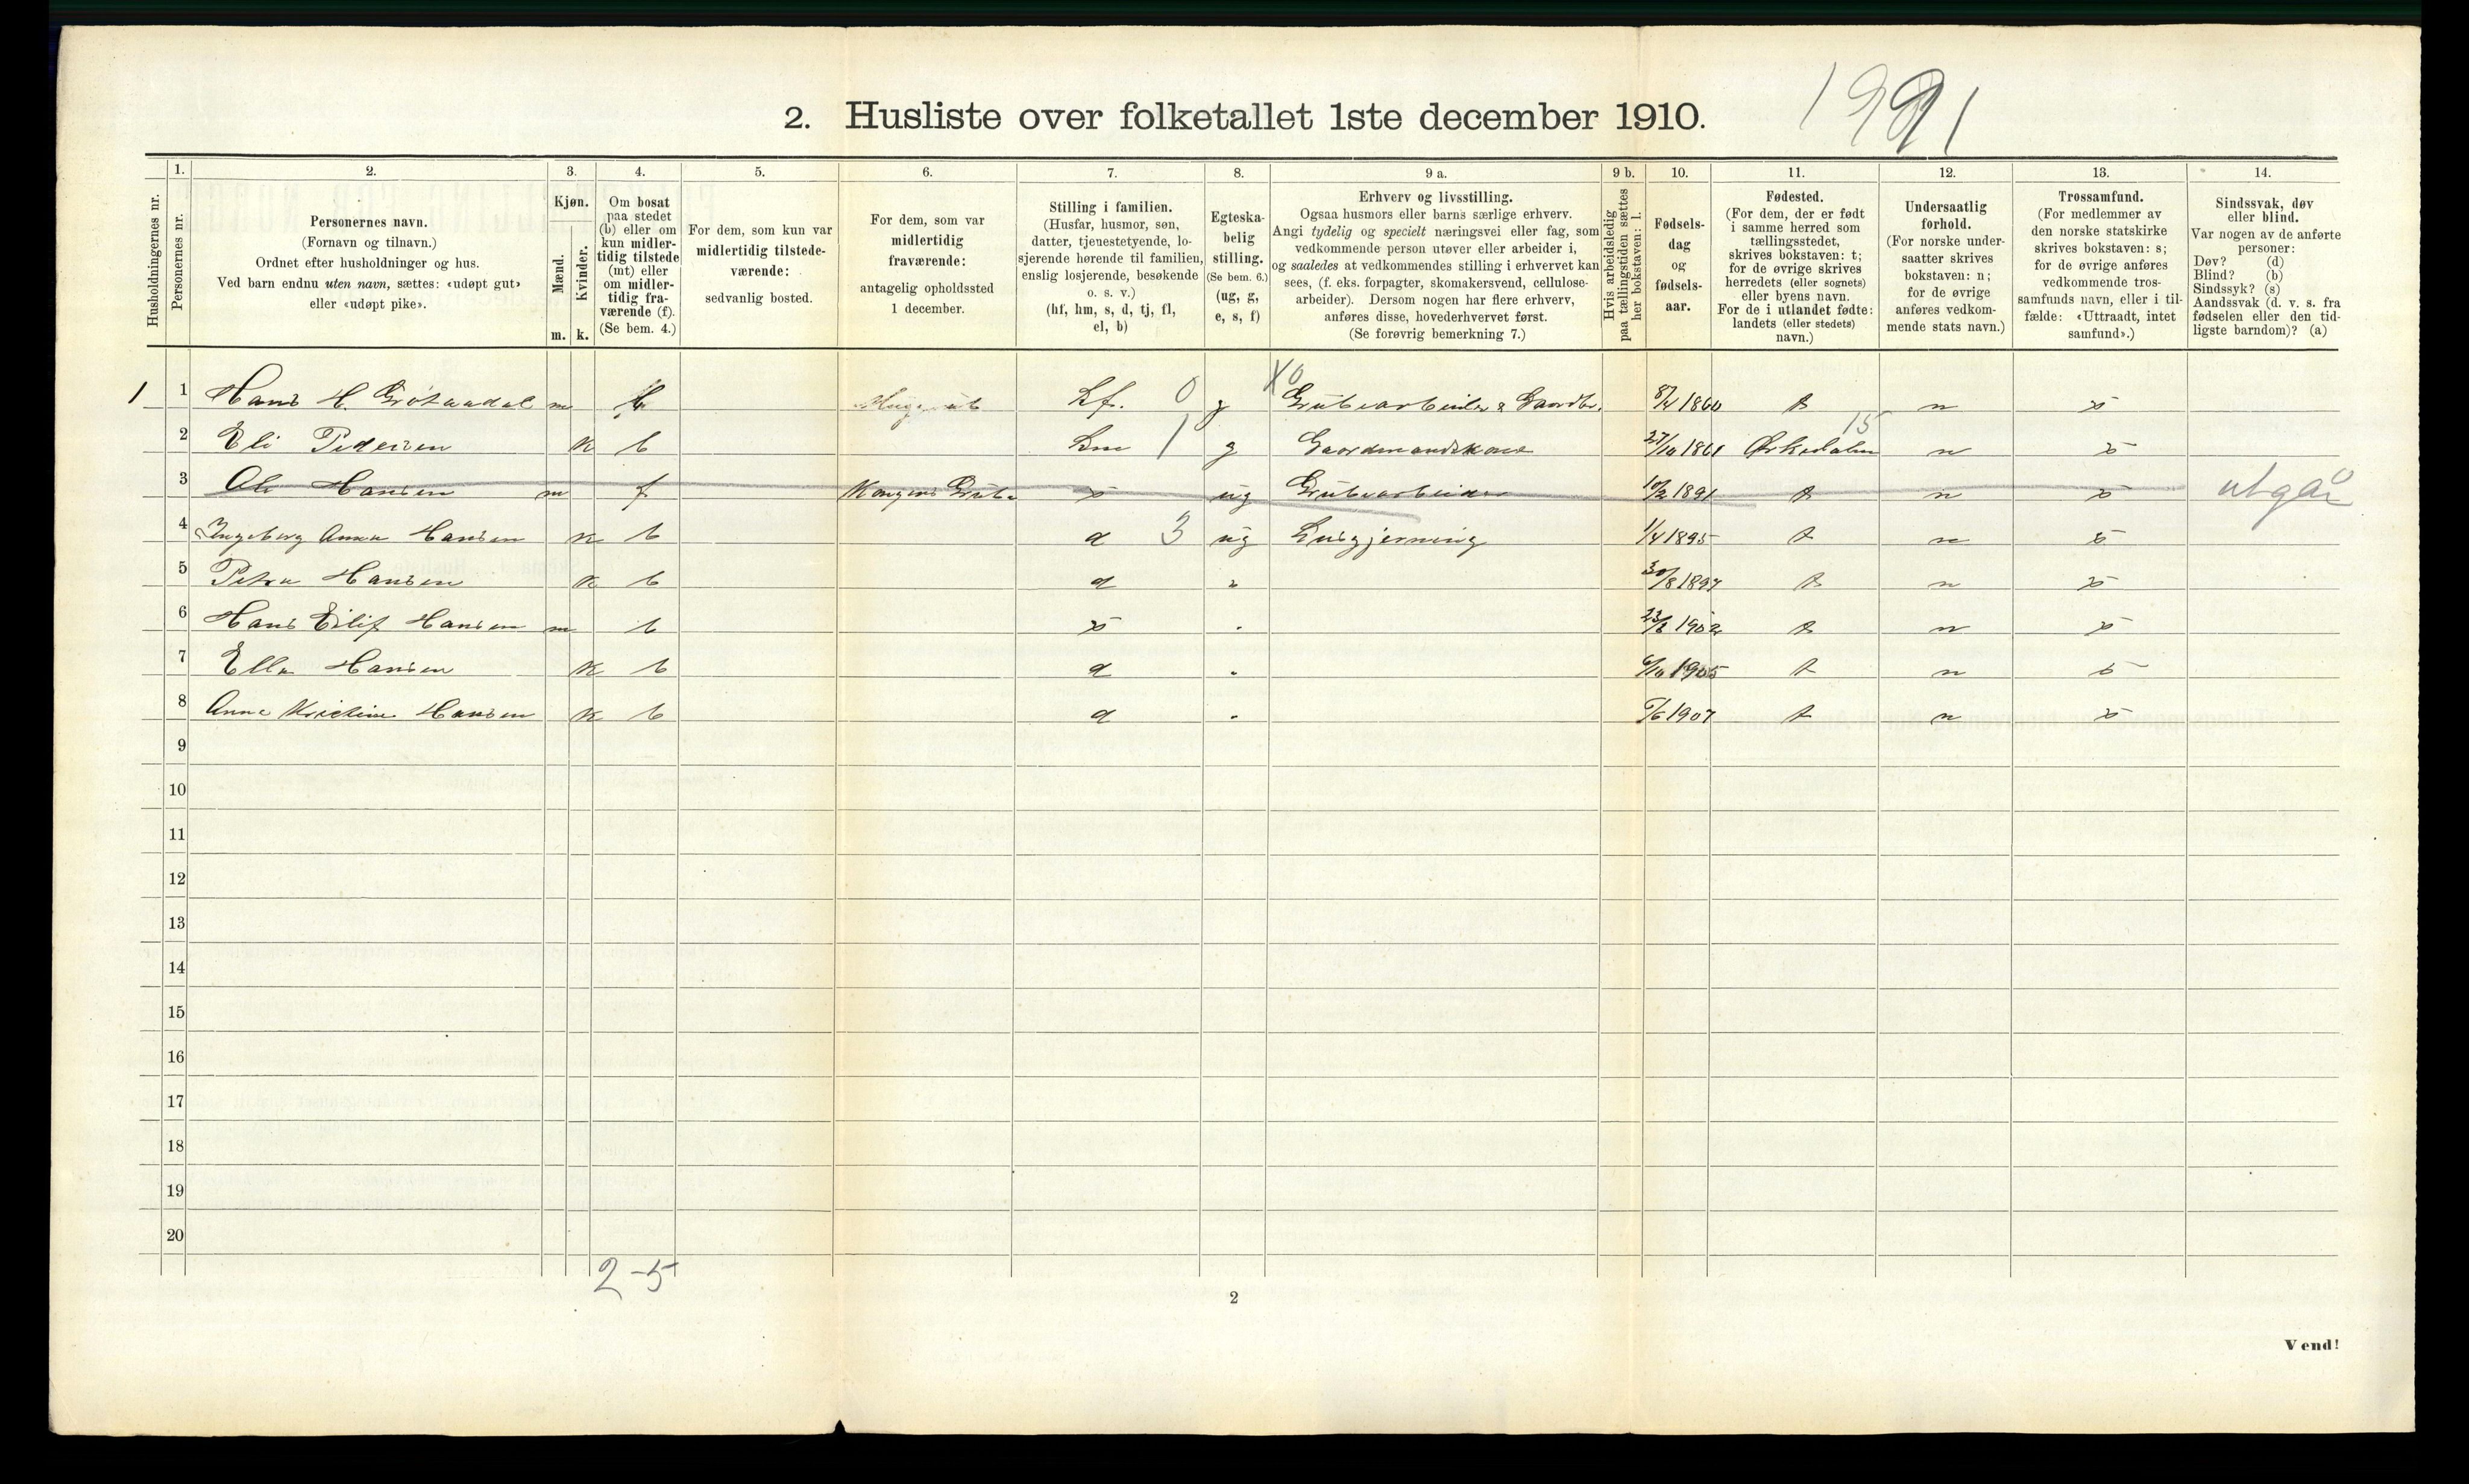 2. Husliste over folketallet 1ste december 1910. 1991
Husholdningernes nr.
1. Personernes nr.
2. Personernes navn. (Fornavn og tilnavn.) Ordnet efter husholdninger og hus. Ved barn endnu uten navn, sættes: «udøpt gut» eller «udøpt pike».
3. Kjøn. Mænd. m. Kvinder. k.
4. Om bosat paa stedet (b) eller om kun midler-tidig tilstede (mt) eller om midler-tidig fra-værende (f). (Se bem. 4.)
5. For dem, som kun var midlertidig tilstede-værende: sedvanlig bosted.
6. For dem, som var midlertidig fraværende: antagelig opholdssted 1 december.
7. Stilling i familien. (Husfar, husmor, søn, datter, tjenestetyende, lo-sjerende hørende til familien, enslig losjerende, besøkende o. s. v.) (hf, hm, s, d, tj, fl, el, b)
8. Egteska-belig stilling. (Se bem. 6.) (ug, g, e, s, f)
9 a. Erhverv og livsstilling. Ogsaa husmors eller barns særlige erhverv. Angi tydelig og specielt næringsvei eller fag, som vedkommende person utøver eller arbeider i, og saaledes at vedkommendes stilling i erhvervet kan sees, (f. eks. forpagter, skomakersvend, cellulose-arbeider). Dersom nogen har flere erhverv, anføres disse, hovederhvervet først. (Se forøvrig bemerkning 7.)
9 b. Hvis arbeidsledig paa tællingstiden sættes her bokstaven: l.
10. Fødsels-dag og fødsels-aar.
11. Fødested. (For dem, der er født i samme herred som tællingsstedet, skrives bokstaven: t; for de øvrige skrives herredets (eller sognets) eller byens navn. For de i utlandet fødte: landets (eller stedets) navn.)
12. Undersaatlig forhold. (For norske under-saatter skrives bokstaven: n; for de øvrige anføres vedkom-mende stats navn.)
13. Trossamfund. (For medlemmer av den norske statskirke skrives bokstaven: s; for de øvrige anføres vedkommende tros-samfunds navn, eller i til-fælde: «Uttraadt, intet samfund».)
14. Sindssvak, døv eller blind. Var nogen av de anførte personer: Døv? (d) Blind? (b) Sindssyk? (s) Aandssvak (d. v. s. fra fødselen eller den tid-ligste barndom)? (a)
1 1 Hans H. m b Hf. 0 g X0 Grubearbeider & Gaardbr. t n s
2 Eli Pedersen k b Hm 1 g Gaardmandskone 27/10 1861 Ørkedalen 15 n s
3 Ole Hansen m f Kongens Grube s ug Grubearbeider 10/2 1891 t n s utgår
4 Ingeborg Anna Hansen k b d 3 ug Husgjerning 1/4 1895 t n s
5 Petra Hansen k b d " 30/8 1897 t n s
6 Hans Eilif Hansen m b s " 1902 t n s
7 Ella Hansen k b d " 6/10 1905 t n s
8 Anna Kristine Hansen k b d " 1907 t n s
9
10
11
12
13
14
15
16
17
18
19
20
2-5
2
Vend!